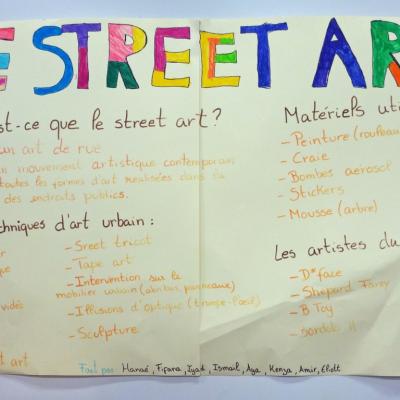 E STREET AR
st-ce que le street art?
un art de rue
n mouvement artistique contemporain
toutes les formes d'art réalisées dans la
des endroits publics.
chniques d'art urbain :
- Sreet tricot
- Tape art
- Intervention sur le
mobilier urbain (abribus, panneaux)
- Illusions d'optique (trompe-l'oeil)
- Sculpture
vidéo
t art
Matériels uti
- Peinture (rouleau
- Craie
- Bombes aérosol
- Stickers
- Mousse (arbre)
Les artistes du
- D*face
- Shepard Fairey
- B Toy
Fait par : Hanaé, Fifara, Iyad, Ismail, Aya, Kenya, Amir, Eliott